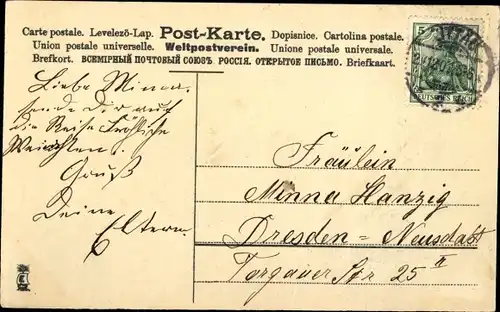 Carte postale. Levelező-Lap. Post-Karte. Dopisnice. Cartolina postale.
Union postale universelle. Weltpostverein. Unione postale universale.
Brefkort. ВСЕМІРНЫЙ ПОЧТОВЫЙ СОЮЗЪ РОССІЯ. ОТКРЫТОЕ ПИСЬМО. Briefkaart.
5 5
DEUTSCHES REICH
Liebe Minna.
sende Dir auf
die Reise Fröhliche
Weinachten!
Gruß
Deine
Eltern.
Fräulein
Minna Hanzig
Dresden=Neustadt
Torgauer Str 25 II